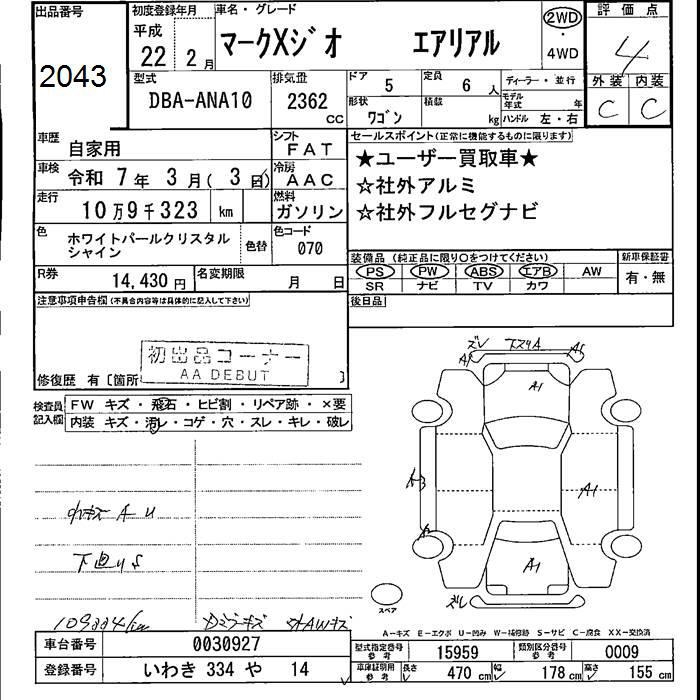 出品番号
2043
初度登録年月
平成
22 2月
車名・グレード
マークXジオ エアリアル
2WD
・
4WD
評価点
4
外装 内装
C C
型式
DBA-ANA10
排気量
2362
CC
ドア 5
定員 6 人
ディーラー・並行
形状 ワゴン
積載 kg
モデル年式 年
ハンドル 左・右
車歴
自家用
シフト
FAT
車検
令和 7年 3月( 3日)
冷房
AAC
走行
10万9千323 km
燃料
ガソリン
色
ホワイトパールクリスタル
シャイン
色替
色コード
070
セールスポイント(正常に機能するものに限ります)
★ユーザー買取車★
☆社外アルミ
☆社外フルセグナビ
装備品 (純正品に限り○をつけてください)
PS PW ABS エアB AW
SR ナビ TV カワ
新車保証書
有・無
R券
14,430円
名変期限
月 日
後日品
注意事項申告欄(不具合内容等は具体的に記入して下さい)
初出品コーナー
AA DEBUT
修復歴 有〔箇所 〕
検査員
記入欄
FW キズ・飛石・ヒビ割・リペア跡・×要
内装 キズ・汚レ・コゲ・穴・スレ・キレ・破レ
ズレ 下スリA
A1
A1
A1
ズレ
スペア
小キズ A U
下廻りS
109324km
ミラーキズ AWキズ
A-キズ E-エクボ U-凹み W-補修跡 S-サビ C-腐食 XX-交換済
車台番号
0030927
型式指定番号
参考
15959
類別区分番号
参考
0009
登録番号
いわき 334 や 14
車庫証明用
参考
長さ 470 cm
幅 178 cm
高さ 155 cm